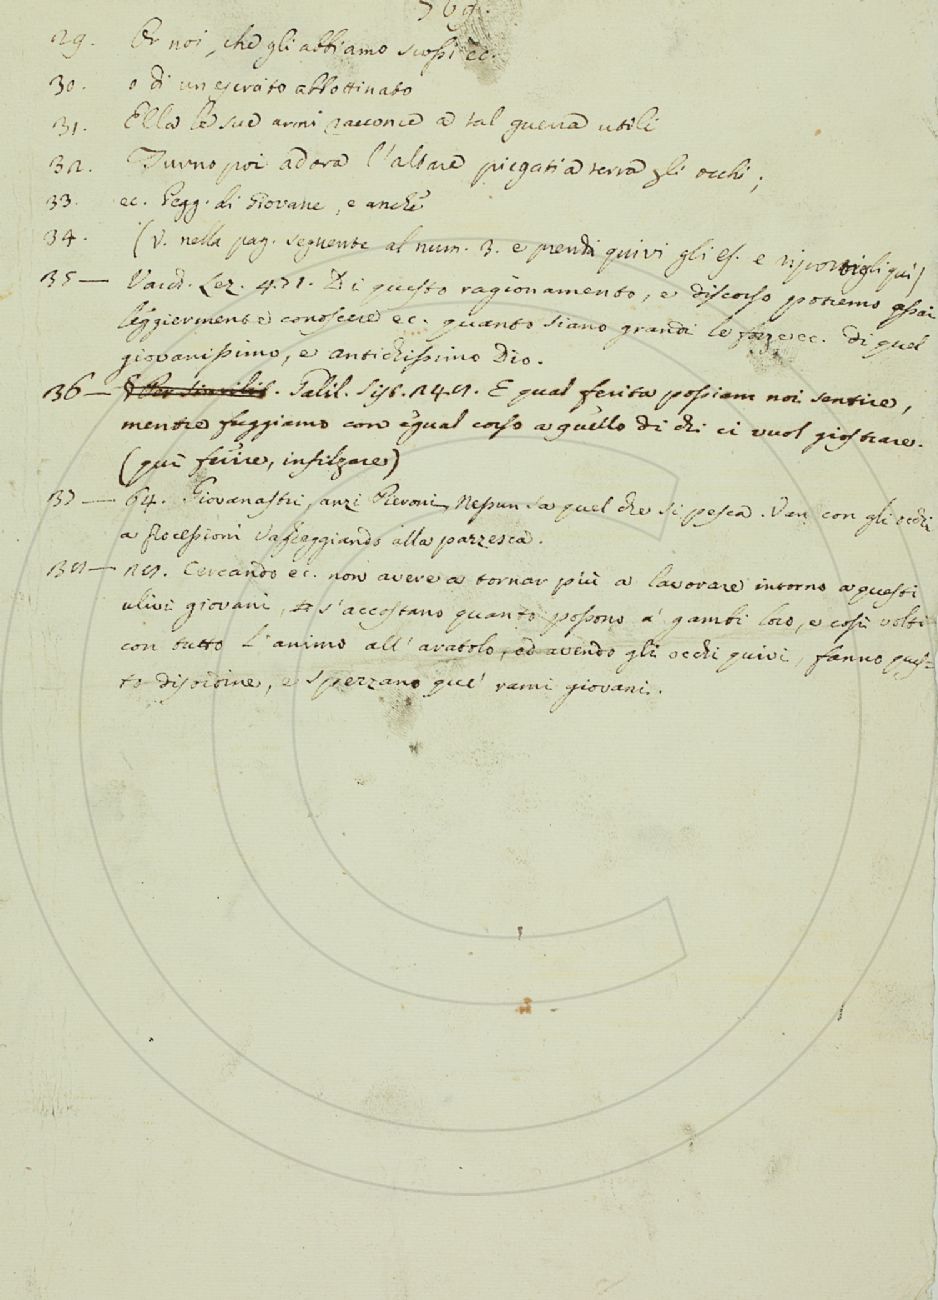 569.
29. Or noi, che gli abbiamo scossi ec.
30. o di un esercito abbottinato
31. Ella le sue armi racconce a tal guerra utili
32. Turno poi adora l'altare piegati a terra gli occhi;
33. ec. Pegg. di Giovane, e anche
34. (V. nella pag. seguente al num. 3. e prendi quivi gli es. e riportigli quì)
35— Varch. Lez. 471. Di questo ragionamento, e discorso potremo assai
leggiermente conoscere ec. quanto siano grandi le forze ec. di quel
giovanissimo, e antichissimo Dio.
36— § Per similit. Galil. Sist. 242. E qual ferita possiam noi sentire,
mentre fuggiamo con egual corso a quello di chi ci vuol giostrare.
(quì ferire, infilzare)
37— 64. Giovanastri, anzi Pieroni, Nessun sa quel che si pesca. Van con gli occhi
a processioni Vaneggiando alla pazzesca.
38— 22. Cercando ec. non avere a tornar più a lavorare intorno a questi
ulivi giovani, s'accostano quanto possono a' gambi loro, e così volti
con tutto l'animo all'aratolo, ed avendo gli occhi quivi, fanno ques-
to disordine, e spezzano que' rami giovani.